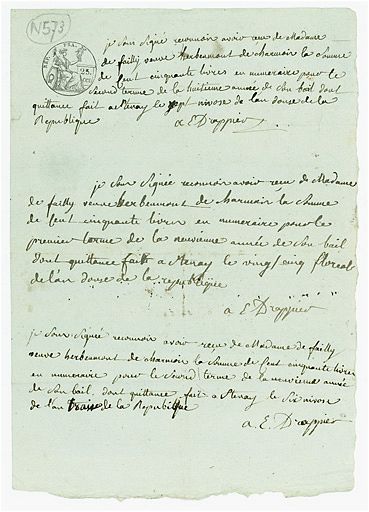 N573
REP. FRA.
25
je Sous Signé reconnoir avoir reçu de Madame
de failly veuve herbenmont de Marmoin la Somme
de sent cinquante livres en numeraire pour le
Second terme de la huitieme année de Son bail dont
quittance fait a Stenay le sept nivose de lan douse de la
Republique
a E Drappier
je Sous Signée reconnoir avoir reçu de Madame
de failly veuve herbenmont de Marmoin la Somme
de sent cinquante livres en numeraire pour le
premier terme de la neuvieme année de Son bail
dont quittance faitt a Stenay le vingt cinq floreal
de lan douse de la republique
a E Drappier
je Sous Signé reconnoir avoir reçu de Madame de failly
veuve herbenmont de Marmoin la Somme de sent cinquante livres
en numeraire pour le Second terme de la neuvieme année
de Son bail dont quittance fait a Stenay le Six nivose
de lan traise de la Republique
a E. Drappier